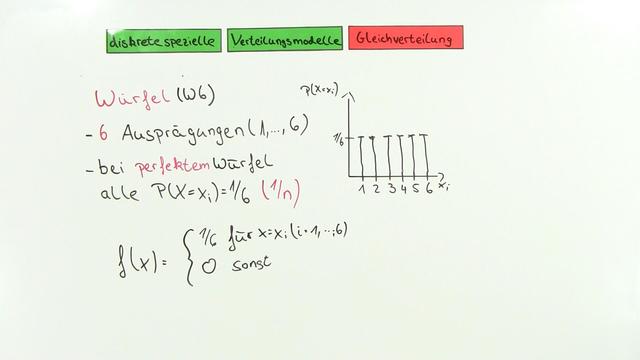 diskrete spezielle Verteilungsmodelle Gleichverteilung
Würfel (W6)
- 6 Ausprägungen (1,...,6)
- bei perfektem Würfel
alle P(X=xᵢ)=1/6 (1/n)
f(x)= { 1/6 für x=xᵢ (i=1,...,6)
0 sonst
P(X=xᵢ)
1/6
1 2 3 4 5 6 xᵢ